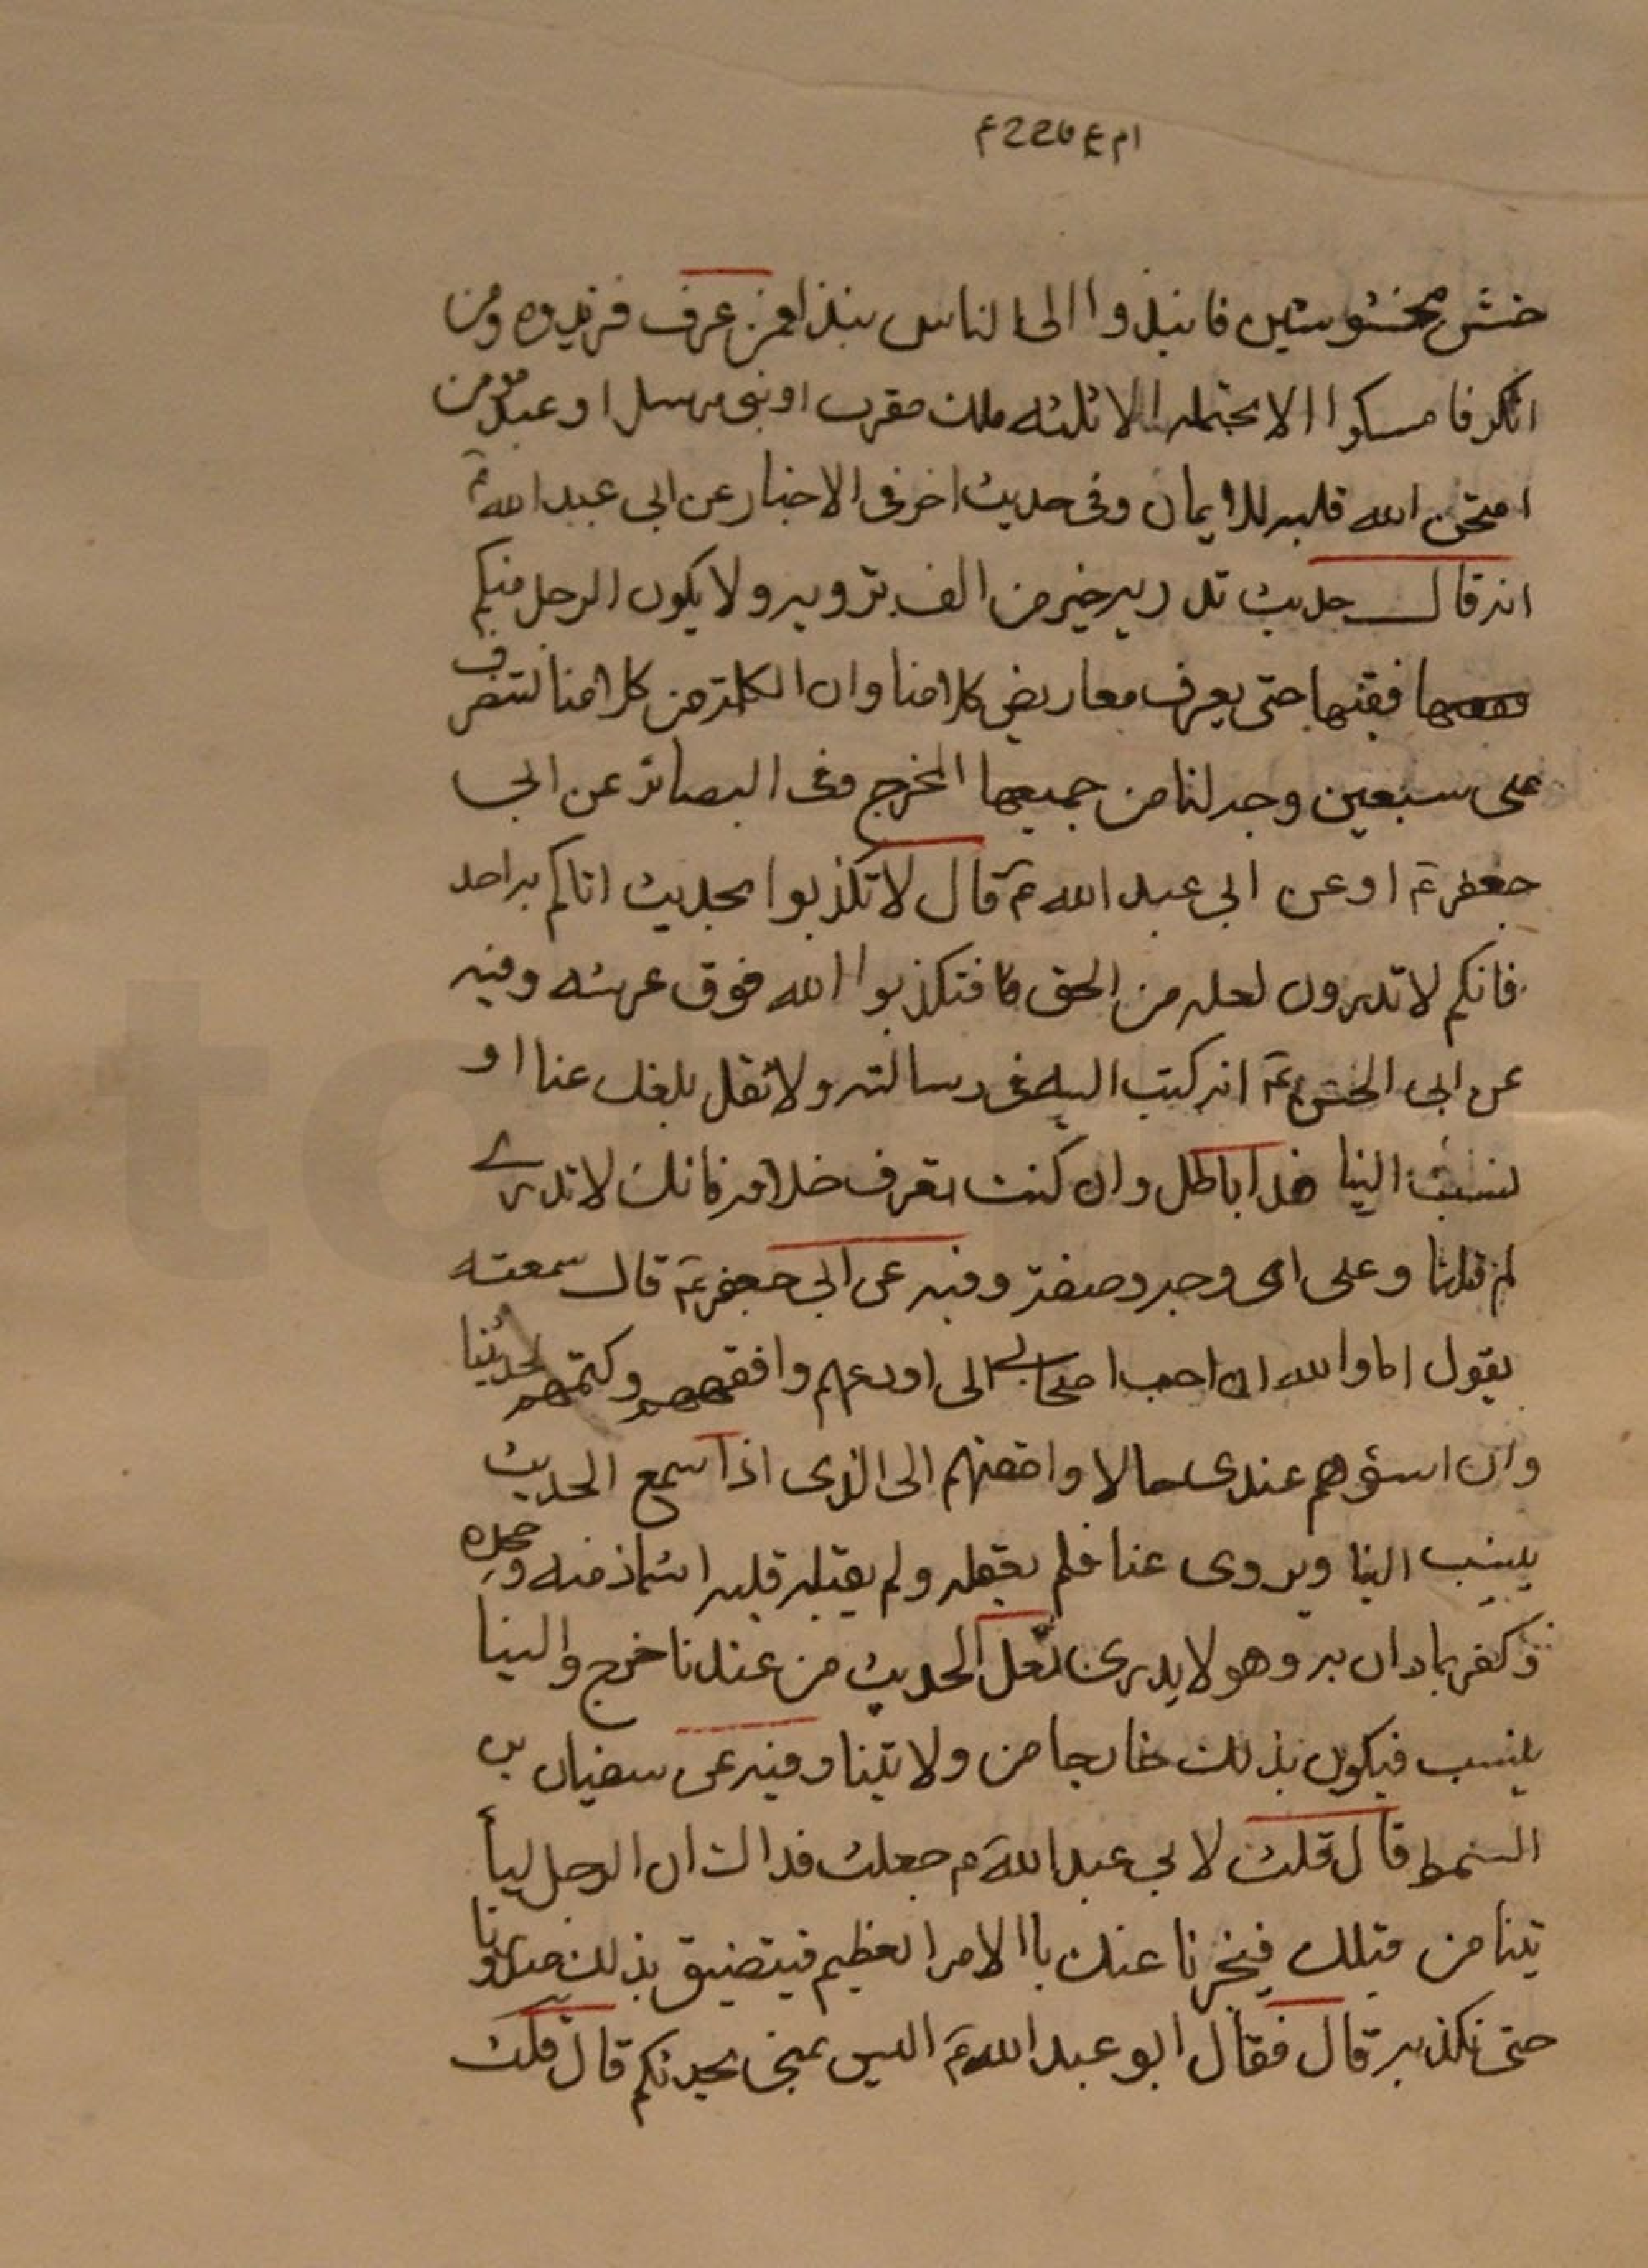 ام ع 226 م
خشن مخشوشن فانبذوا الى الناس نبذا فمن عرف فزيدوه ومن
انكر فامسكوا الا يحتمله الا ثلثه ملك مقرب او نبى مرسل او عبد مؤمن
امتحن الله قلبه للايمان وفى حديث اخر فى الاخبار عن ابى عبد الله ع
انه قال حديث تدريه خير من الف ترويه ولا يكون الرجل منكم
فقيها حتى يعرف معاريض كلامنا وان الكلمة من كلامنا لتنصرف
على سبعين وجه لنا من جميعها المخرج وفى البصائر عن ابى
جعفر ع او عن ابى عبد الله ع قال لا تكذبوا بحديث اتاكم به احد
فانكم لا تدرون لعله من الحق فتكذبوا الله فوق عرشه وفيه
عن ابى الحسن ع انه كتب اليه فى رسالته ولا تقل بلغك عنا او
نسبت الينا هذا باطل وان كنت تعرف خلافه فانك لا تدرى
لم قلنا وعلى اى وجه وصفة وفيه عن ابى جعفر ع قال سمعته
يقول اما والله ان احب اصحابى الى اورعهم وافقههم وكتمهم لحديثنا
وان اسؤهم عندى حالا وامقتهم الى الذى اذا سمع الحديث
ينسب الينا ويروى عنا فلم يعقله ولم يقبله قلبه اشماز منه وجحده
وكفر بمادان به وهو لا يدرى لعل الحديث من عندنا خرج والينا
ينسب فيكون بذلك خارجا من ولايتنا وفيه عن سفيان بن
السمط قال قلت لابى عبد الله ع جعلت فداك ان الرجل ليأ
تينا من قبلك فيخبرنا عنك باالامر العظيم فيتضيق بذلك صدورنا
حتى نكذبه قال فقال ابو عبد الله ع اليس عنى يحدثكم قال قلت